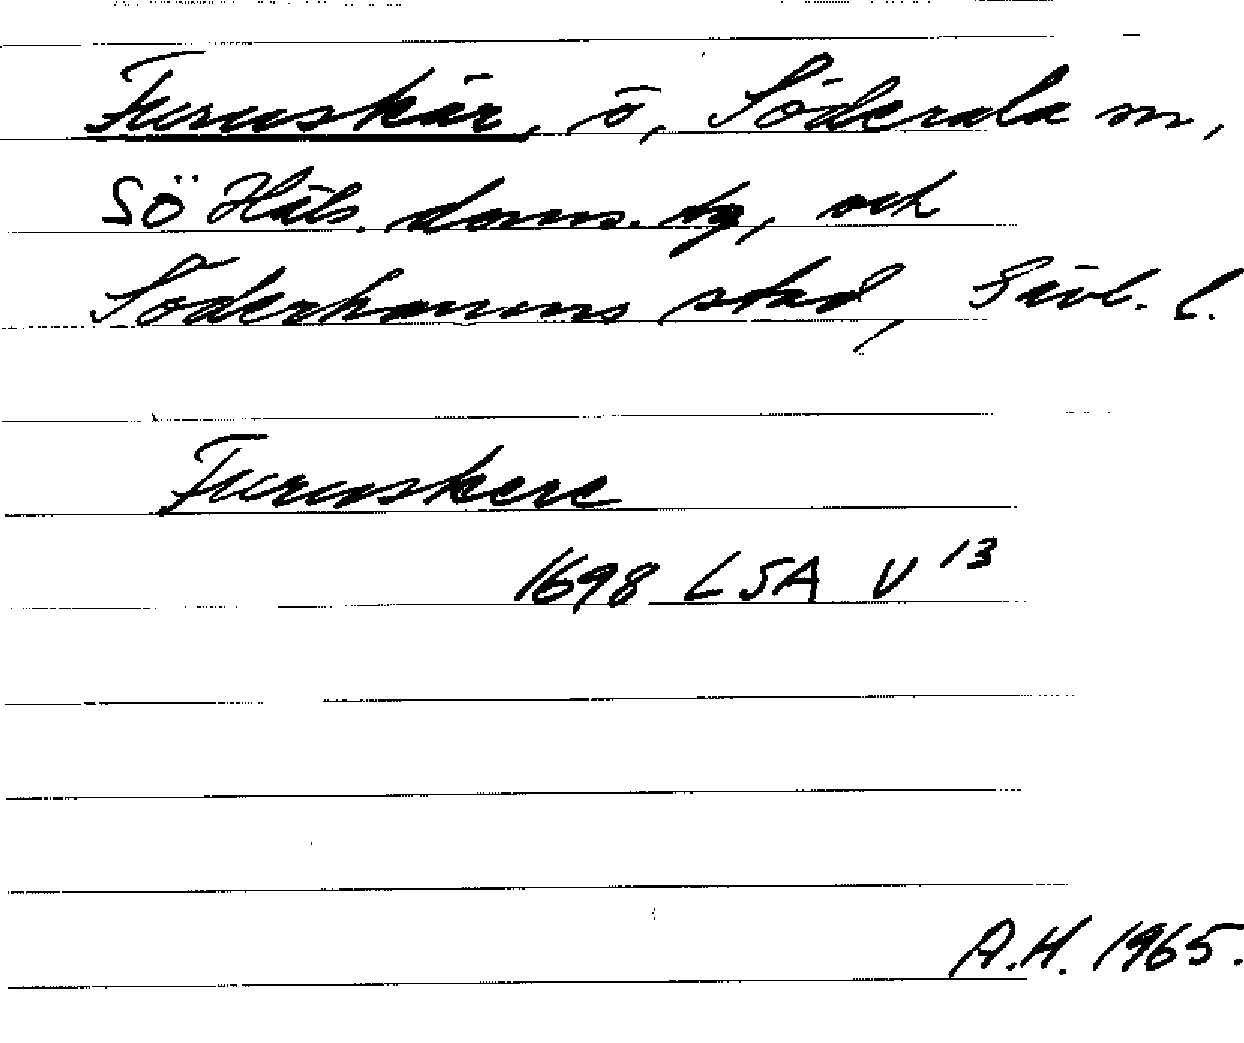 Furuskär, ö, Söderala sn,
SÖ Häls. doms. tg, och
Söderhamns stad, Gävl. l.
Furuskere
1698 LSA V 13
A.H. 1965.